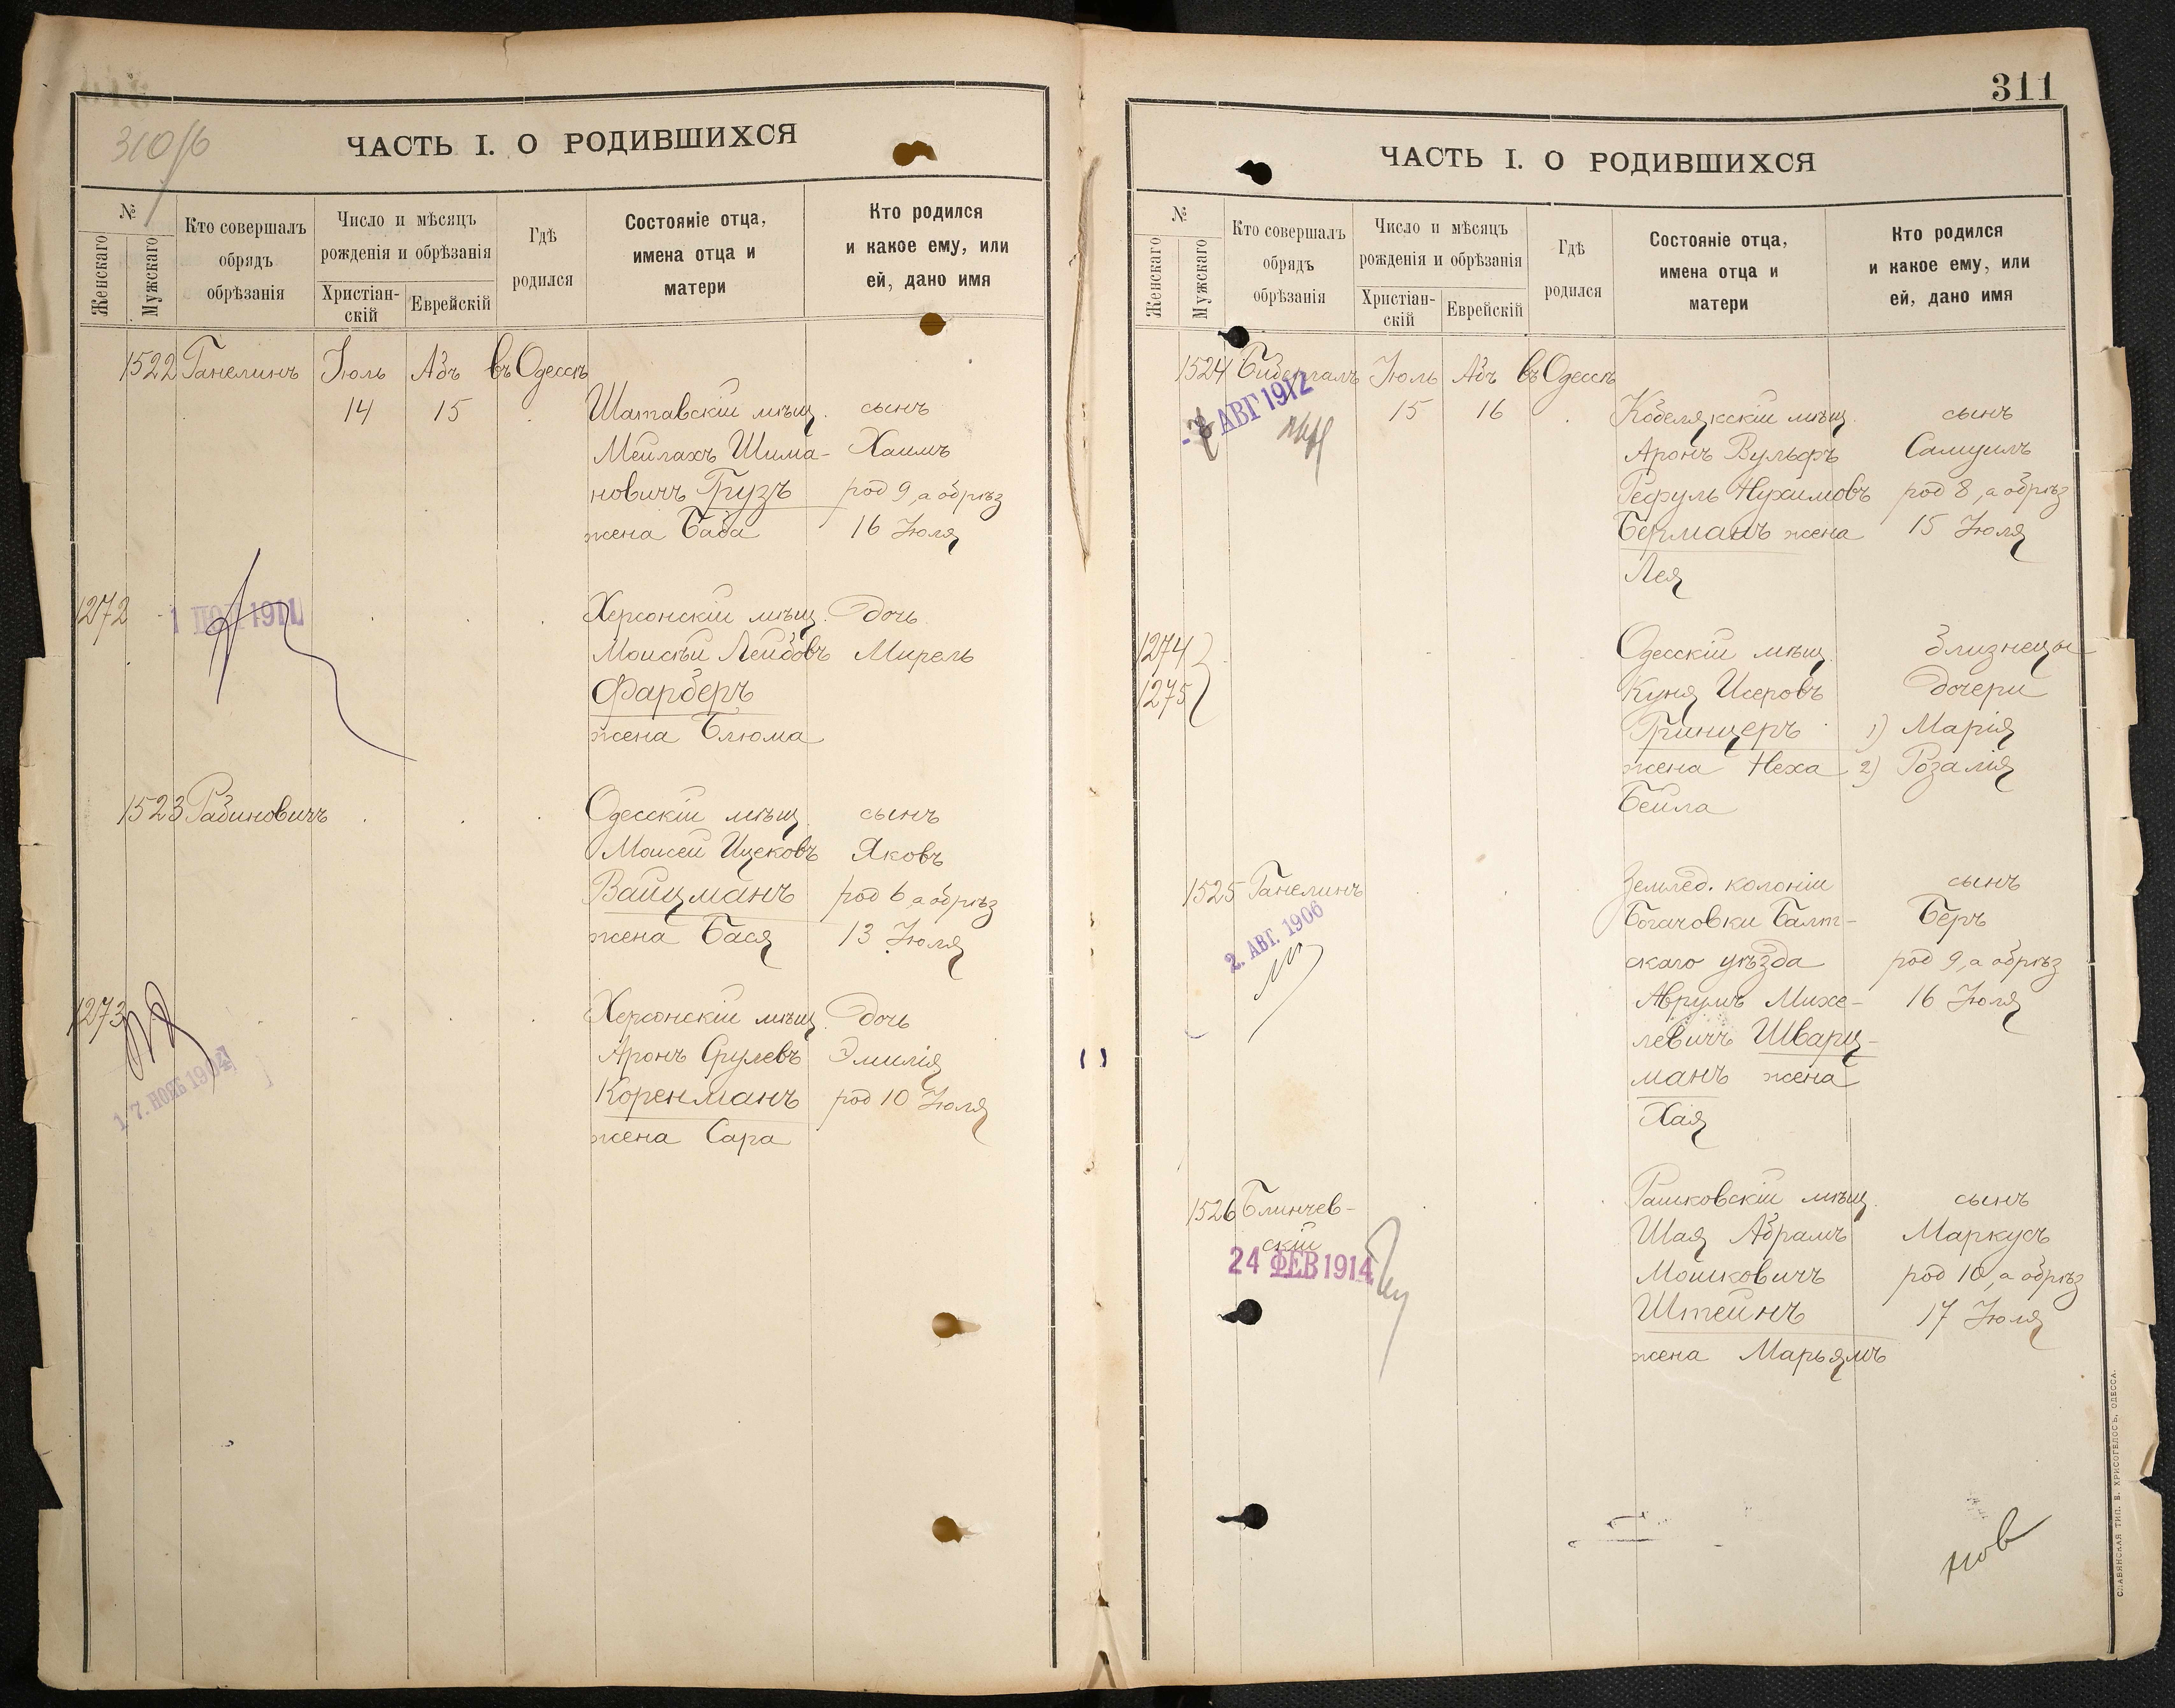 310/б
ЧАСТЬ I. О РОДИВШИХСЯ
№
Женскаго
Мужскаго
Кто совершалъ
обрядъ
обрѣзанія
Число и мѣсяцъ
рожденія и обрѣзанія
Христіан-
скій
Еврейскій
Гдѣ
родился
Состояніе отца,
имена отца и
матери
Кто родился
и какое ему, или
ей, дано имя
1522 Ганелинъ Іюль Абъ въ Одессѣ
14 15 Шатавскій мѣщ. сынъ
Мейлахъ Шима- Хаимъ
новичъ Грузъ род 9, а обрѣз
жена Баба 16 Іюля
1272 Херсонскій мѣщ. дочь
Моисѣй Лейбовъ Мирель
Фарберъ
жена Блюма
1523 Рабиновичъ Одесскій мѣщ. сынъ
Моисей Ицековъ Яковъ
Вайцманъ род 6, а обрѣз
жена Бася 13 Іюля
1273 Херсонскій мѣщ. дочь
Аронъ Срулевъ Эмилія
17. НОЯБ 1904
Коренманъ род 10 Іюля
жена Сара
311
ЧАСТЬ I. О РОДИВШИХСЯ
№
Женскаго
Мужскаго
Кто совершалъ
обрядъ
обрѣзанія
Число и мѣсяцъ
рожденія и обрѣзанія
Христіан-
скій
Еврейскій
Гдѣ
родился
Состояніе отца,
имена отца и
матери
Кто родился
и какое ему, или
ей, дано имя
1524 Бидергалъ Іюль Абъ въ Одессѣ
АВГ 1912
15 16 Кобелякскій мѣщ. сынъ
Аронъ Вульфъ Самуилъ
Рефуль Нухимовъ род 8, а обрѣз
Берманъ жена 15 Іюля
Лея
1274 Одесскій мѣщ. близнецы
1275 Куня Исеровъ дочери
Гринцеръ 1) Марія
жена Неха 2) Розалія
Бейла
1525 Ганелинъ Землед. колоніи сынъ
2. АВГ. 1906
Богачовки Балт- Беръ
скаго уѣзда род 9, а обрѣз
Аврумъ Михе- 16 Іюля
левичъ Шварц-
манъ жена
Хая
1526 Блинчев- Рашковскій мѣщ. сынъ
скій Шая Абрамъ Маркусъ
24 ФЕВ 1914
Мошковичъ род 10, а обрѣз
Штейнъ 17 Іюля
жена Марьямъ
СЛАВЯНСКАЯ ТИП. Е. ХРИСОГЕЛОСЪ, ОДЕССА.